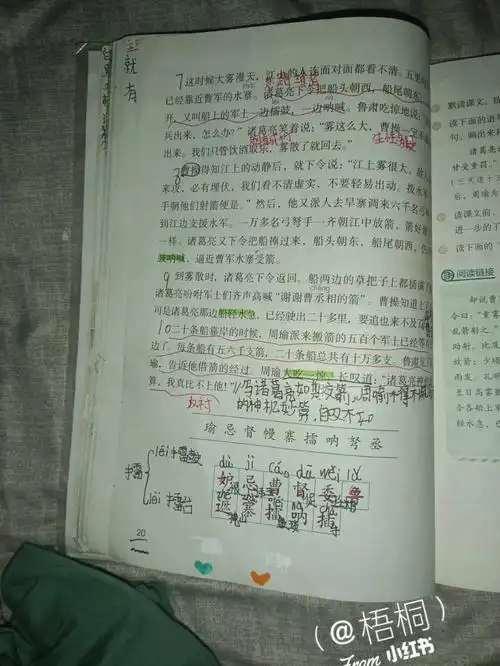 就
有
7 这时候大雾漫天,江上的人连面对面都看不清。五更
已经靠近曹军的水寨。诸葛亮下令把船头朝西,船尾朝东
开,又叫船上的军士一边擂鼓,一边呐喊。鲁肃吃惊地说:
兵出来,怎么办?”诸葛亮笑着说:“雾这么大,曹操一定不
出来。我们只管饮酒取乐,雾散了就回去。”
8 曹操得知江上的动静后,就下令说:“江上雾很大,敌人
来攻,必有埋伏,我们看不清虚实,不要轻易出动。拨水军
手朝他们射箭便是。”然后,他又派人去旱寨调来六千名弓
到江边支援水军。一万多名弓弩手一齐朝江中放箭,箭好像
一样。诸葛亮又下令把船掉过来,船头朝东,船尾朝西,仍
鼓呐喊,逼近曹军水寨受箭。
9 到雾散时,诸葛亮下令返回。船两边的草把子上都插满了
chéng
诸葛亮吩咐军士们齐声高喊“谢谢曹丞相的箭”。曹操知道上了
可是诸葛亮那边船轻水急,已经驶出二十多里,要追也来不及了
10 二十条船靠岸的时候,周瑜派来搬箭的五百个军士已经等在
边了。每条船有五六千支箭,二十条船总共有十万多支。鲁肃见了
瑜,告诉他借箭的经过。周瑜大吃一惊,长叹道:“诸葛亮神机
算,我真比不上他!”
反衬
瑜 忌 督 幔 寨 擂 呐 弩 丞
dù jì cáo dū wěi lǔ
妒 忌 曹 督 委 鲁
léi
lèi 擂台
20
默读课文,
读下面的语
句,画出来
诸葛亮
甘受重罚。”
(三天造十
后,周瑜为
读课文前,
进一步的了
读下面的
阅读链接
却说
令曰:“重雾
乱箭射之。
助射。比及
放箭;少顷
雨发。孔明
至日高雾
令各船上
轻水急,
(@梧桐)
From 小红书